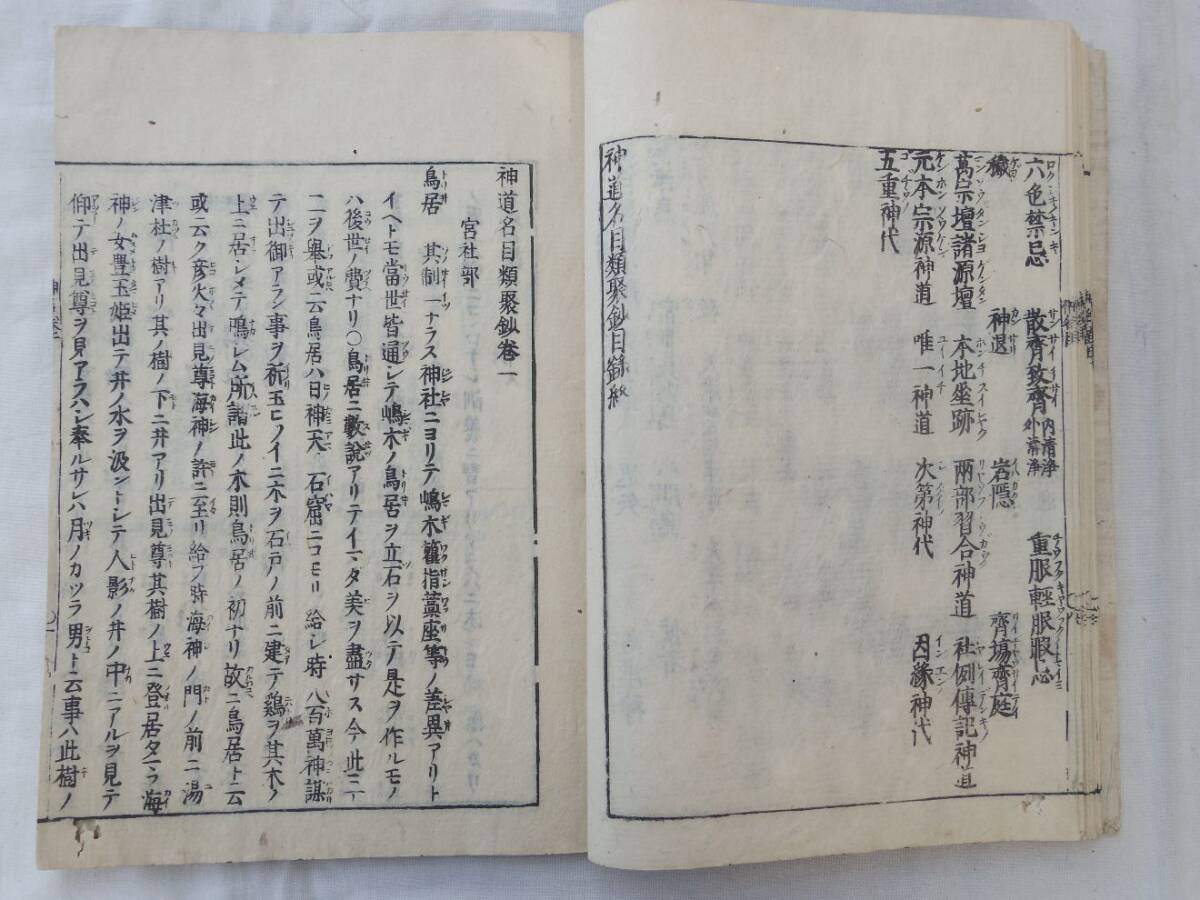 六色禁忌 散齊致齊 内清浄 外清浄 重服輕服暇忌
穢 神退 岩隠 齊場齊庭
萬宗壇諸源壇 本地垂跡 兩部習合神道 社例傳記神道
元本宗源神道 唯一神道 次第神代 因縁神代
五重神代
神道名目類聚鈔目録終
神道名目類聚鈔巻一
宮社部
鳥居 其制一ナラス神社ニヨリテ嶋木 指藁座等ノ差異アリト
イヘトモ當世皆通シテ嶋木ノ鳥居ヲ立石ヲ以テ是ヲ作ルモノ
ハ後世ノ費ナリ○鳥居ニ數說アリテイマダ美ヲ盡サス今此ニ一
二ヲ舉或云鳥居ハ日神天ノ石窟ニコモリ給シ時八百萬神謀
テ出御アラン事ヲ祈玉ヒノイニ木ヲ石戸ノ前ニ建テ鷄ヲ其木ノ
上ニ居シメテ鳴シム所謂此ノ木則鳥居ノ初ナリ故ニ鳥居ト云
或云ク彦火々出見尊海神ノ許ニ至リ給フ時海神ノ門ノ前ニ湯
津杜ノ樹アリ其ノ樹ノ下ニ井アリ出見尊其樹ノ上ニ登居タマフ海
神ノ女豊玉姫出テ井ノ水ヲ汲ントシテ人影ノ井ノ中ニアルヲ見テ
仰テ出見尊ヲ見アラハシ奉ルサレハ月ノカツラ男ト云事ハ此樹ノ